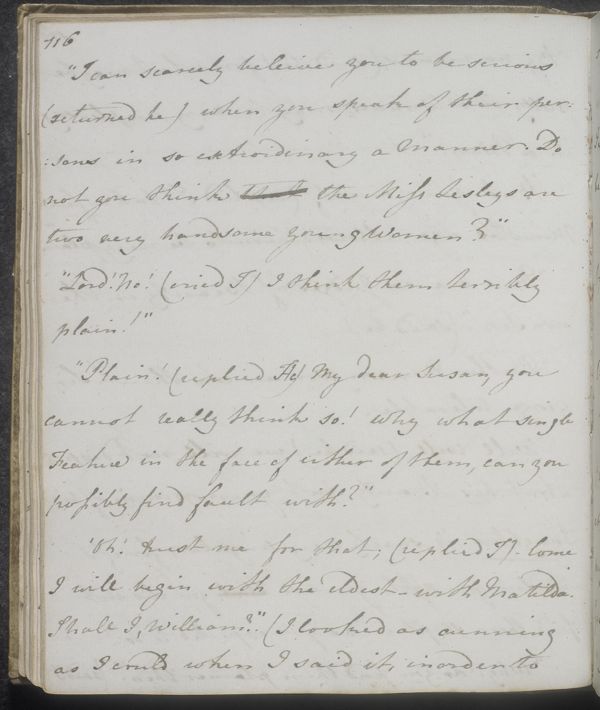 116
"I can scarcely beleive you to be serious
(returned he) when you speak of their per:
:sons in so extroidinary a Manner. Do
not you think the Miss Lesleys are
two very handsome young Women?"
"Lord! No! (cried I) I think them terribly
plain!"
"Plain! (replied He) My dear Susan, you
cannot really think so! Why what single
Feature in the face of either of them, can you
possibly find fault with?"
"Oh! trust me for that; (replied I). Come
I will begin with the eldest - with Matilda.
Shall I, William?" (I looked as cunning
as I could when I said it, inorder to